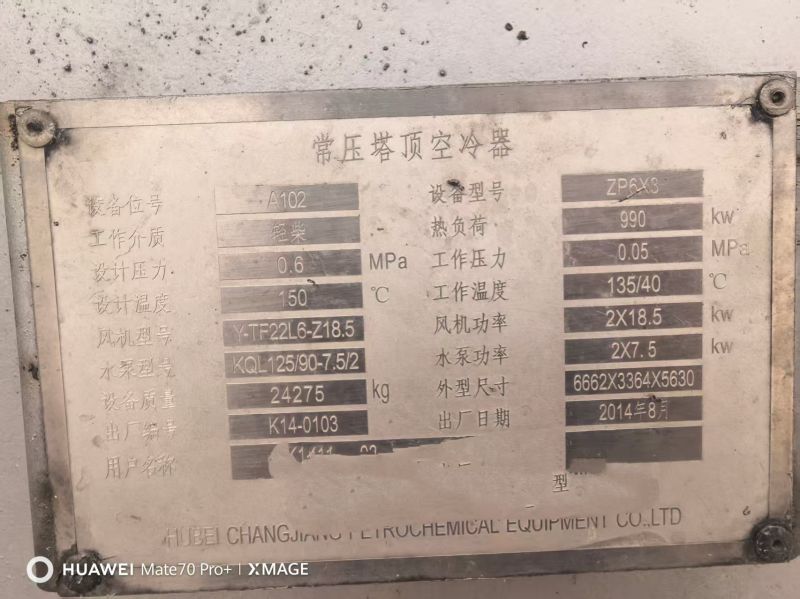 常压塔顶空冷器
设备位号 A102 设备型号 ZP6X3
工作介质 轻柴 热负荷 990 kw
设计压力 0.6 MPa 工作压力 0.05 MPa
设计温度 150 ℃ 工作温度 135/40 ℃
风机型号 Y-TF22L6-Z18.5 风机功率 2X18.5 kw
水泵型号 KQL125/90-7.5/2 水泵功率 2X7.5 kw
设备质量 24275 kg 外型尺寸 6662X3364X5630
出厂编号 K14-0103 出厂日期 2014年8月
用户名称
型
HUBEI CHANGJIANG PETROCHEMICAL EQUIPMENT CO.,LTD
HUAWEI Mate70 Pro+ | XMAGE